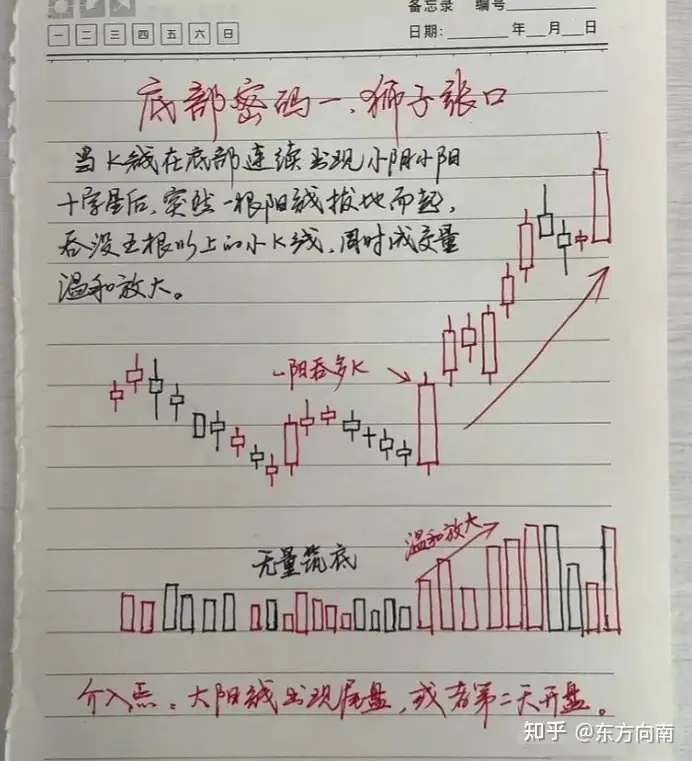 备忘录 编号
一 二 三 四 五 六 日
日期: 年 月 日
底部密码一、狮子张口
当K线在底部连续出现小阴小阳
十字星后,突然一根阳线拔地而起,
吞没五根以上的小K线,同时成交量
温和放大。
一阳吞多K
温和放大
无量筑底
介入点:大阳线出现尾盘,或者第二天开盘。
知乎 @东方向南